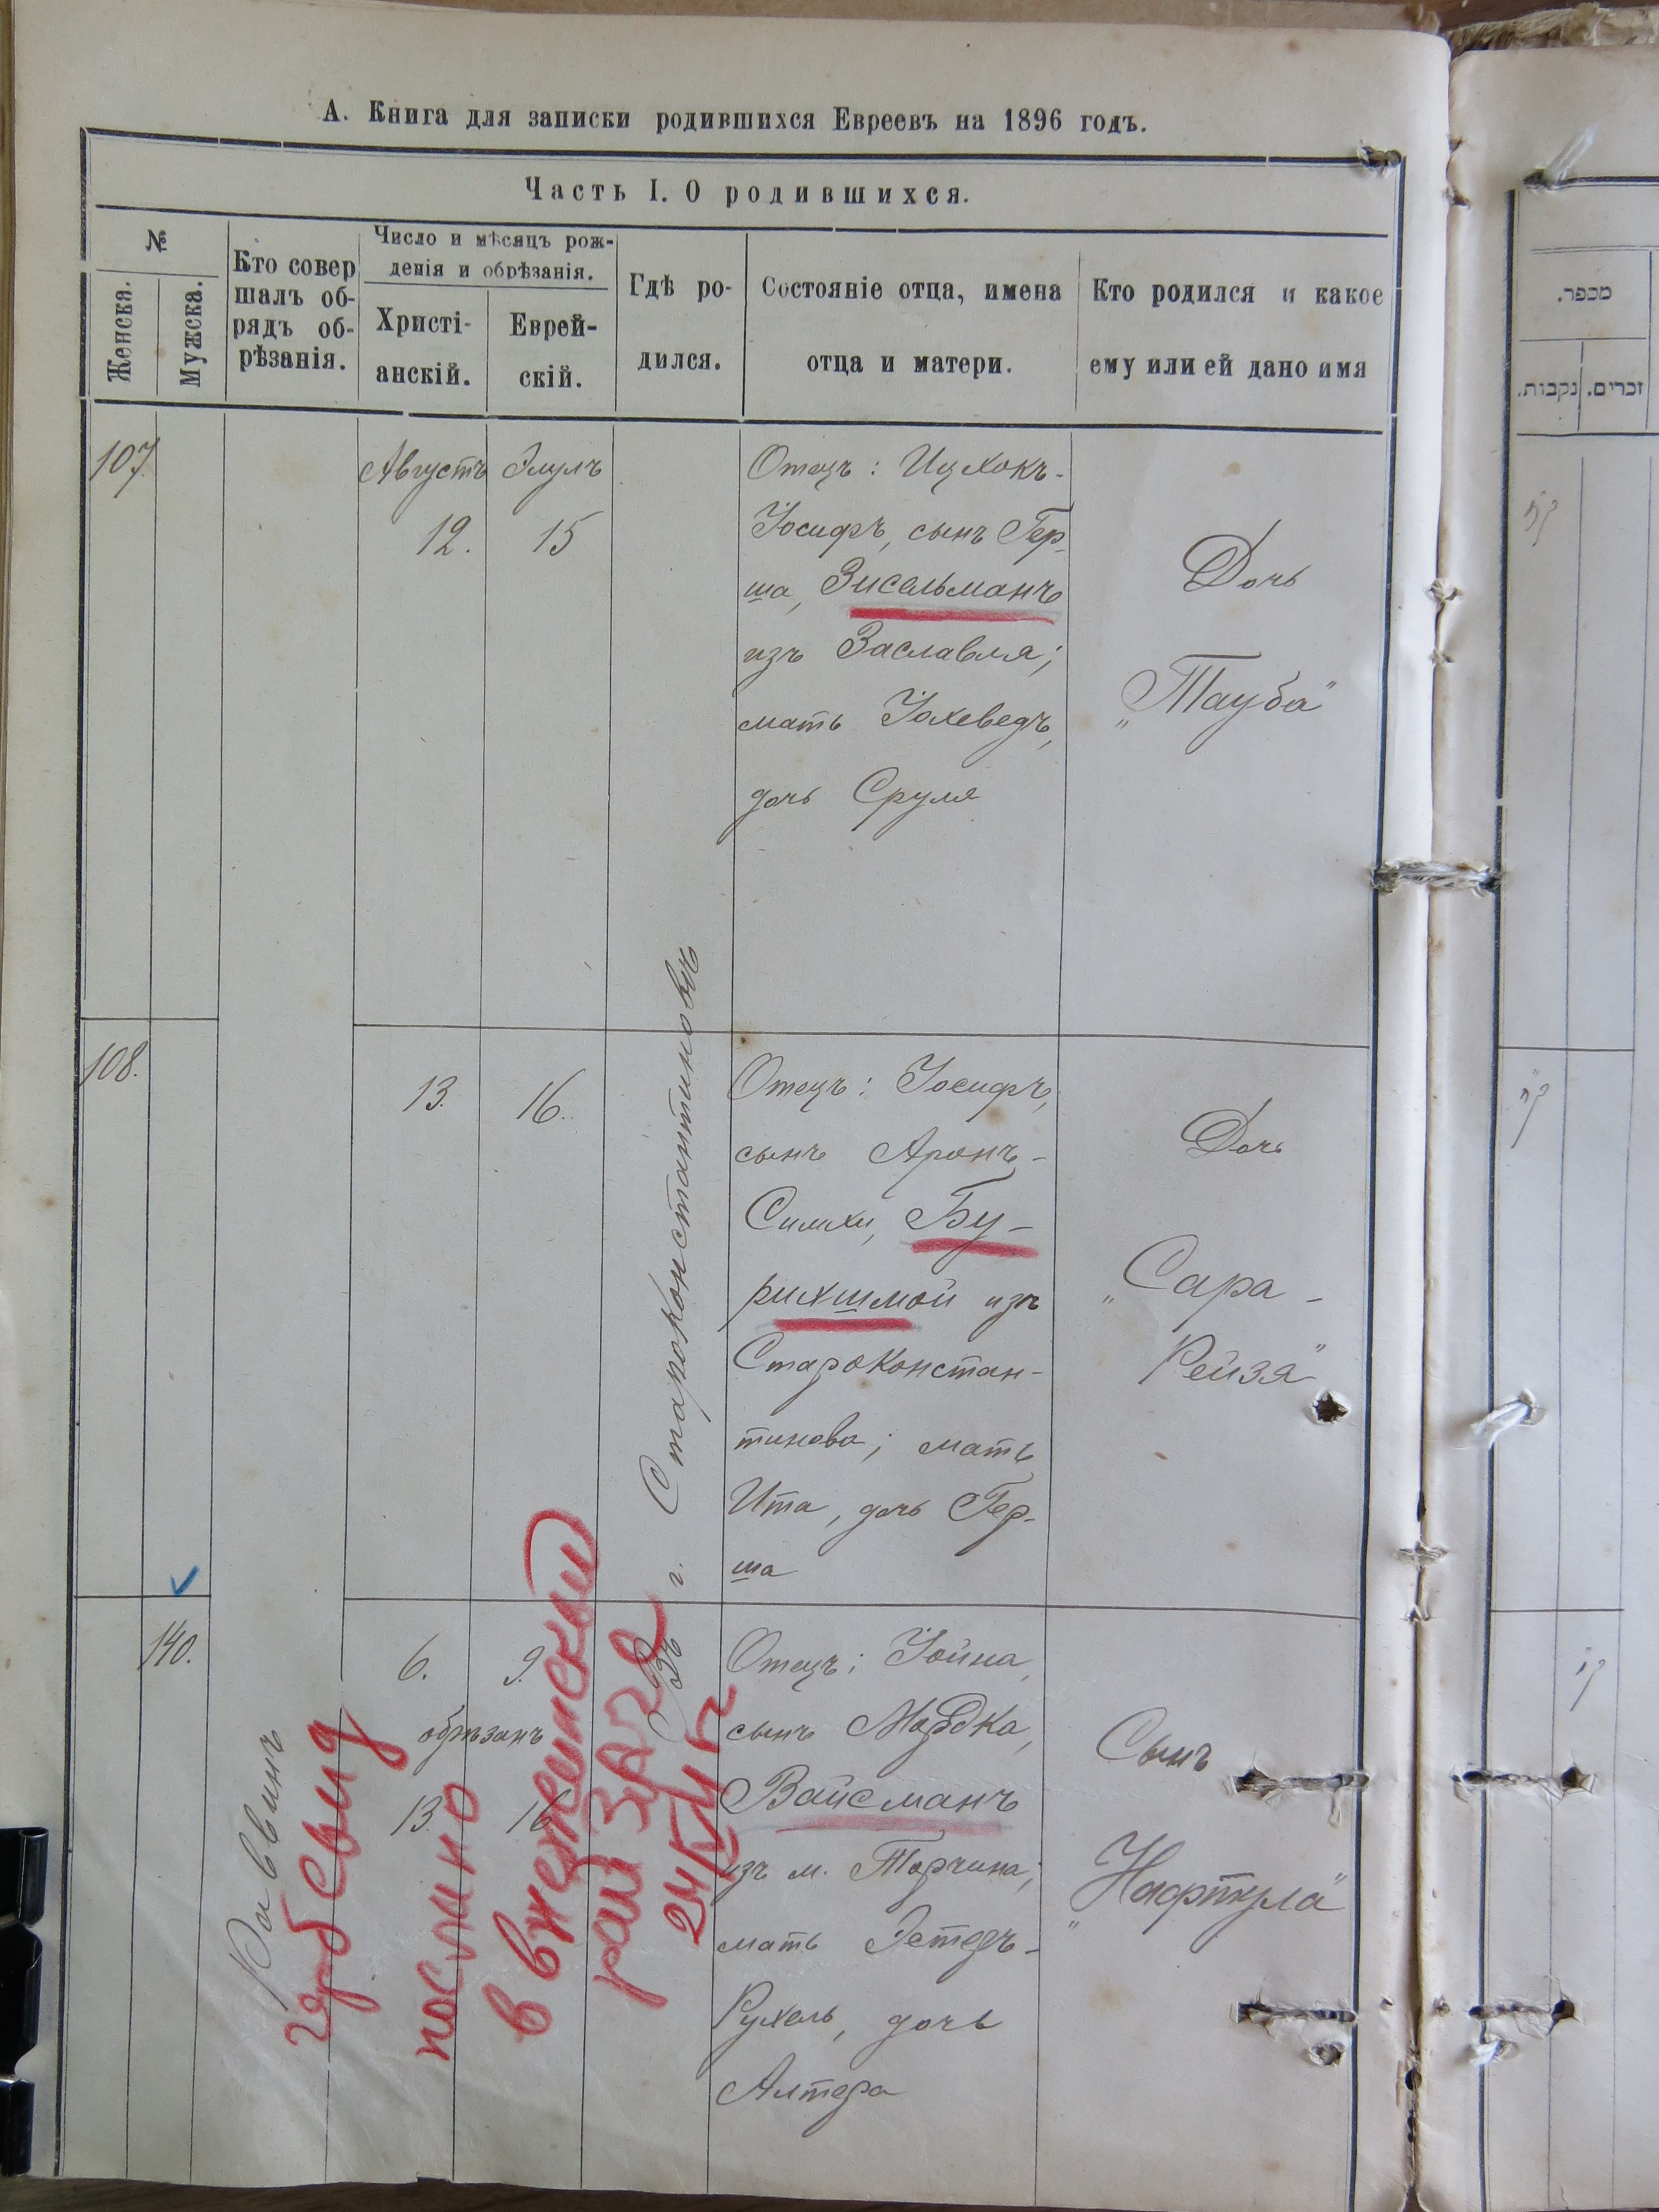 А. Книга для записки родившихся Евреевъ на 1896 годъ.
Часть I. О родившихся.
№
Женска.
Мужска.
Кто совер
шалъ об-
рядъ об-
рѣзанія.
Число и мѣсяцъ рож-
денія и обрѣзанія.
Христі-
анскій.
Еврей-
скій.
Гдѣ ро-
дился.
Состояніе отца, имена
отца и матери.
Кто родился и какое
ему или ей дано имя
107.
Августъ
12.
Элулъ
15
Отецъ: Ицхокъ-
Іосифъ, сынъ Гер-
ша, Зисельманъ
изъ Заславля;
мать Іохеведъ,
дочь Сруля
Дочь
"Тауба"
108.
13.
16.
Отецъ: Іосифъ,
сынъ Аронъ-
Симхи, Бу-
рихшмой изъ
Староконстан-
тинова; мать
Ита, дочь Гер-
ша
Дочь
"Сара-
Рейзя"
Въ г. Староконстантиновѣ
140.
Раввинъ
6.
9.
обрѣзанъ
13.
16
Отецъ: Іойна,
сынъ Мордка,
Вайсманъ
изъ м. Торчина;
мать Эстеръ-
Рухель, дочь
Алтера
Сынъ
"Нафтула"
послано
в
рай ЗАГС
מספר.
נקבות.
זכרים.
קז
קח
קמ